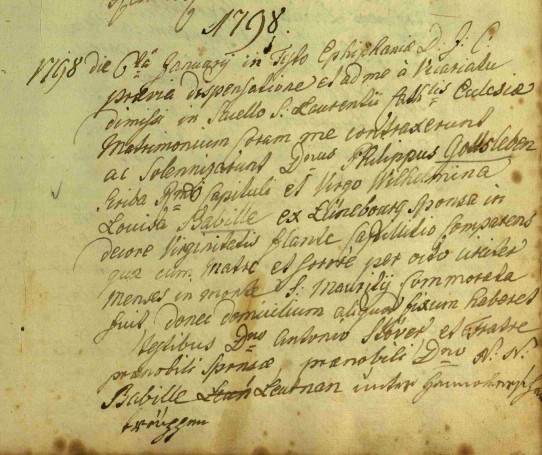 1798.
1798 die 6ta January in Festo Epiphaniæ D. J. C.
prævia dispensatione et ad me à Vicariatu
dimissa in Sacello S. Laurentii Eclesiæ
Matrimonium coram me contraxerunt
ac solemnizarunt Dnus Philippus Gottsleben
scriba Rmi Capituli et Virgo Wilhelmina
Louisa Babille ex Lünebourg sponsa in
decore Virginitatis flante Capillitio comparens
quæ cum matre et sorore per octo circiter
menses in monte S. Maurity commorata
fuit donec domicilium aliquod fixum haberet
Testibus Dno Antonio Stöver et Fratre
prænobili sponsæ prænobili Dno N: N:
Babille Leutnan unter
trouppen